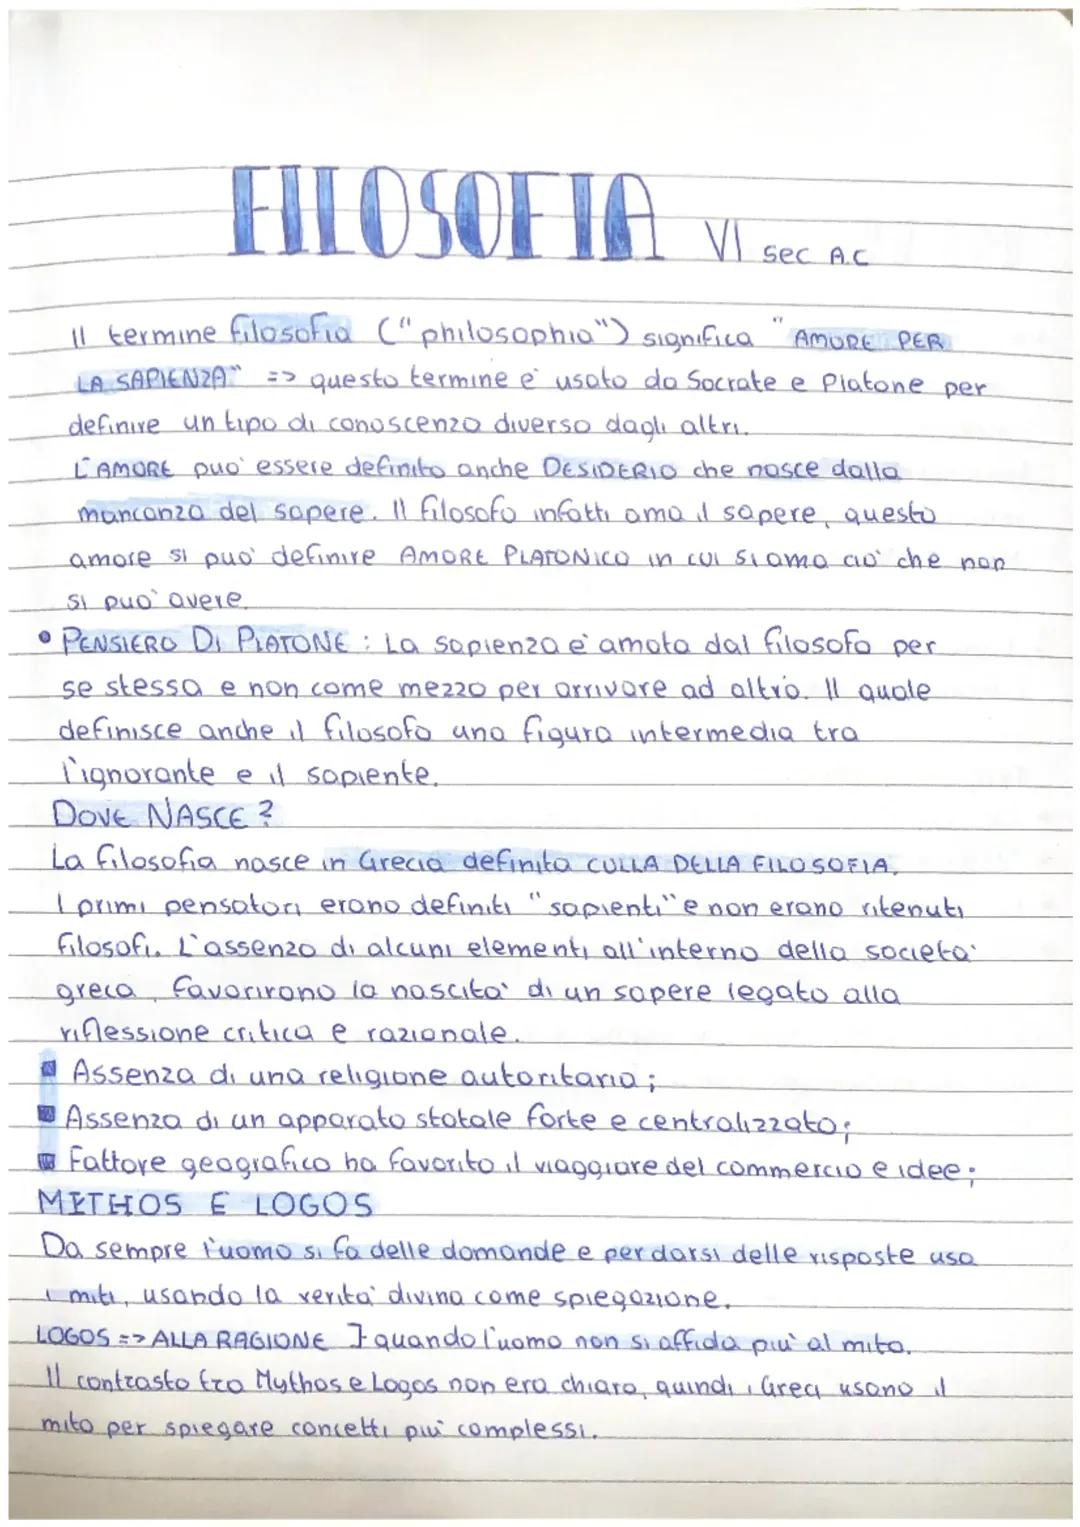 FILOSOFIA VI sec A.C
Il termine filosofia ("philosophia") significa "AMORE PER
LA SAPIENZA" => questo termine e' usato da Socrate e Platone per
definire un tipo di conoscenza diverso dagli altri.
L'AMORE puo' essere definito anche DESIDERIO che nasce dalla
mancanza del sapere. Il filosofo infatti ama il sapere, questo
amore si puo' definire AMORE PLATONICO in cui si ama cio' che non
si puo' avere.
• PENSIERO DI PLATONE : La sapienza e' amata dal filosofo per
se stessa e non come mezzo per arrivare ad altro. Il quale
definisce anche il filosofo una figura intermedia tra
l'ignorante e il sapiente.
DOVE NASCE ?
La filosofia nasce in Grecia definita CULLA DELLA FILOSOFIA.
I primi pensatori erano definiti "sapienti" e non erano ritenuti
filosofi. L'assenza di alcuni elementi all'interno della societa'
greca, favorirono la nascita' di un sapere legato alla
riflessione critica e razionale.
▪ Assenza di una religione autoritaria ;
▪ Assenza di un apparato statale forte e centralizzato;
▪ Fattore geografico ha favorito il viaggiare del commercio e idee;
METHOS E LOGOS
Da sempre l'uomo si fa delle domande e per darsi delle risposte usa
i miti, usando la verita' divina come spiegazione.
LOGOS => ALLA RAGIONE } quando l'uomo non si affida piu' al mito.
Il contrasto fra Mythos e Logos non era chiaro, quindi i Greci usano il
mito per spiegare concetti piu' complessi.